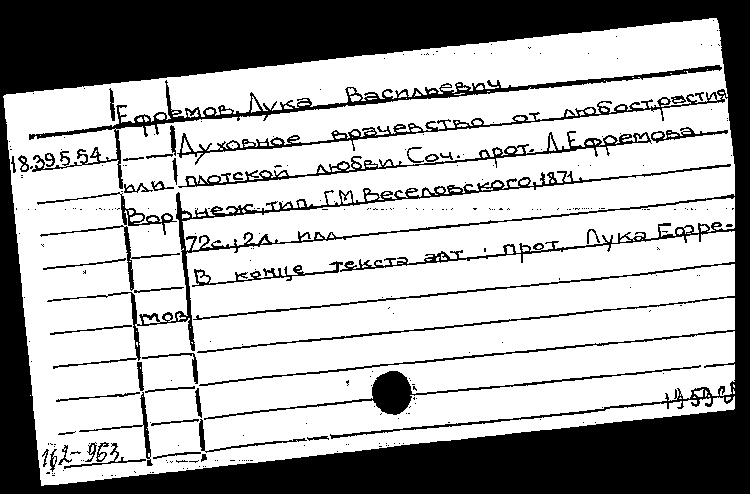 Ефремов, Лука Васильевич.
18.39.5.54. Духовное врачевство от любострастия
или плотской любви. Соч. прот. Л. Ефремова.
Воронеж, тип. Г.М. Веселовского, 1871.
72с.; 2л. илл.
В конце текста авт.: прот. Лука Ефре-
мов.
162-963.